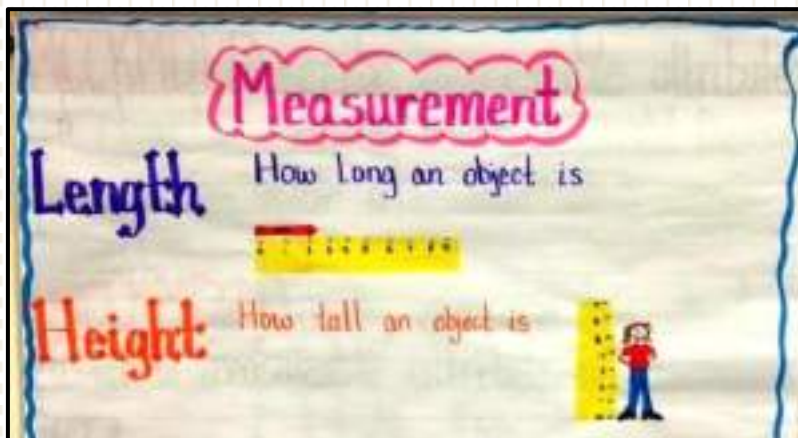 Measurement
Length How long an object is
Height How tall an object is